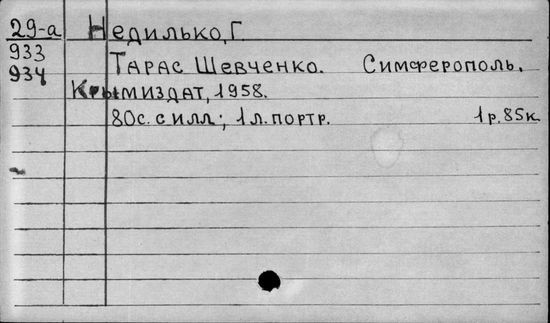 29-а Недилько, Г.
933 Тарас Шевченко. Симферополь,
934 Крымиздат, 1958.
80с. с илл; 1 л. портр. 1р. 85к